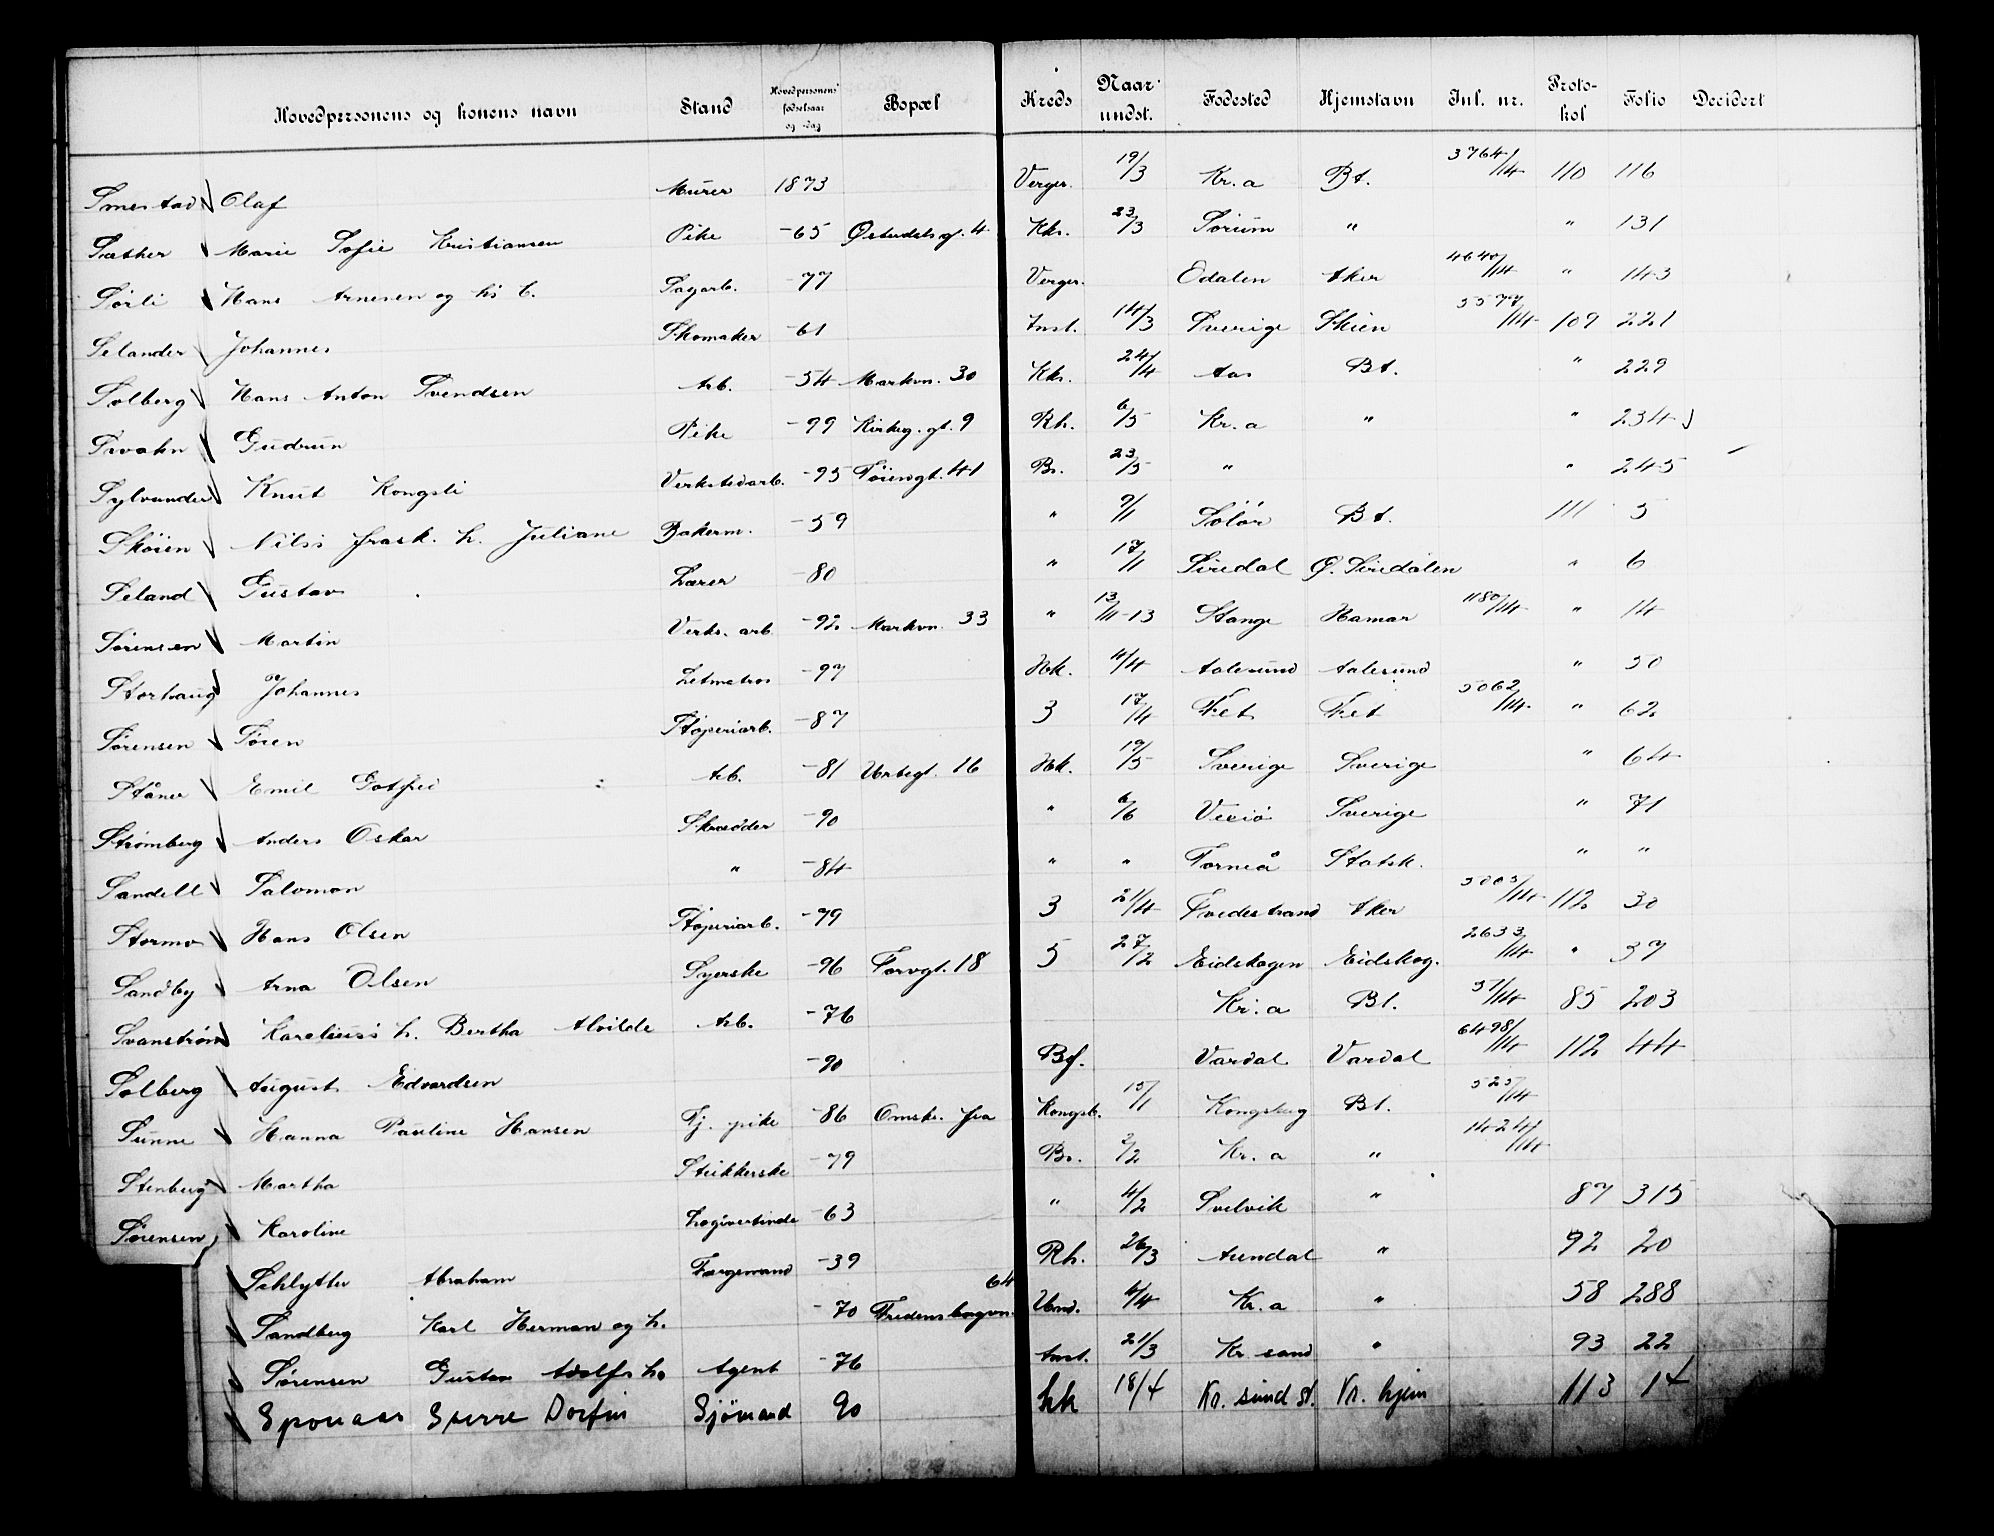 Hovedpersonens og konens navn Stand Hovedpersonens fødselsaar og -dag Bopæl Kreds Naar undst. Fødested Hjemstavn Inl. nr. Protokol Folio Decidert
Smestad Olaf Murer 1873 Verger. 19/3 Kr.a Bt. 3764/14 110 116
Sæther Marie Sofie Kristiansen Pike -65 Østerdalsgt. 4 Kk. 23/3 Sørum " " 131
Sørli Hans Arnesen og hs h. Sagarb. -77 Verger. Edalen Aker 4640/14 " 143
Selander Johannes Skomaker -61 Inst. 14/3 Sverige Skien 5577/14 109 221
Solberg Hans Anton Svendsen Arb. -54 Markvn. 30 Kk. 24/4 Aas Bt. " 229
Svahn Gudrun Pike -99 Kirkeg. gt. 9 Rh. 6/5 Kr.a " " 234
Sylvander Knut Kongsli Verkstedarb. -95 Tøiengt. 41 Br. 23/5 " " 245
Skøien Nils frask. h. Juliane Bakerm. -59 " 9/1 Solør Bt. 111 5
Seland Gustav Lærer -80 " 17/1 Siredal Ø. Siredalen " 6
Sørensen Martin Verks. arb. -92 Markvn. 33 " 13/11-13 Stange Hamar 1180/14 " 14
Storhaug Johannes Letmatros -97 Hk. 4/4 Aalesund Aalesund " 50
Sørensen Søren Støperiarb. -87 3 17/4 Fet Fet 5062/14 " 62
Ståner Emil Gotfred Arb. -81 Urtegt. 16 Hk. 19/5 Sverige Sverige " 64
Strømberg Anders Oskar Skrædder -90 " 6/6 Vexiø Sverige " 71
Sandell Salomon " -84 " " Torneå Statsk. " "
Stormo Hans Olsen Støperiarb. -79 3 21/4 Tvedestrand Aker 5005/14 112 30
Sandby Arna Olsen Syerske -96 Torvgt. 18 5 27/2 Eidskogen Eidskog. 2633/14 " 37
Svanstrøm Karelius's h. Bertha Alvilde Arb. -76 Kr.a Bt. 57/14 85 203
Solberg August Edvardsen -90 Bf. Vardal Vardal 6498/14 112 44
Sunne Hanna Pauline Hansen Tj. pike -86 Omstr. fra Kongsb. 15/1 Kongsberg Bt. 525/14
Stenberg Martha Strikkerske -79 Br. 2/2 Kr.a " 1424/14
Sørensen Karoline Logivertinde -63 " 4/2 Svelvik " 87 315
Schlytter Abraham Færgemand -39 Rh. 26/3 Arendal " 92 20
Sandberg Karl Herman og h. -70 Fredensborgvn. 64 Und. 4/4 Kr.a " 58 288
Sørensen Gustav Adolfs h. Agent -76 Inst. 21/3 Kr. sand " 93 22
Sponaas Sverre Dorfin Sjömand 90 kk 18/4 Kr. sund St. Kr. hjem 113 14